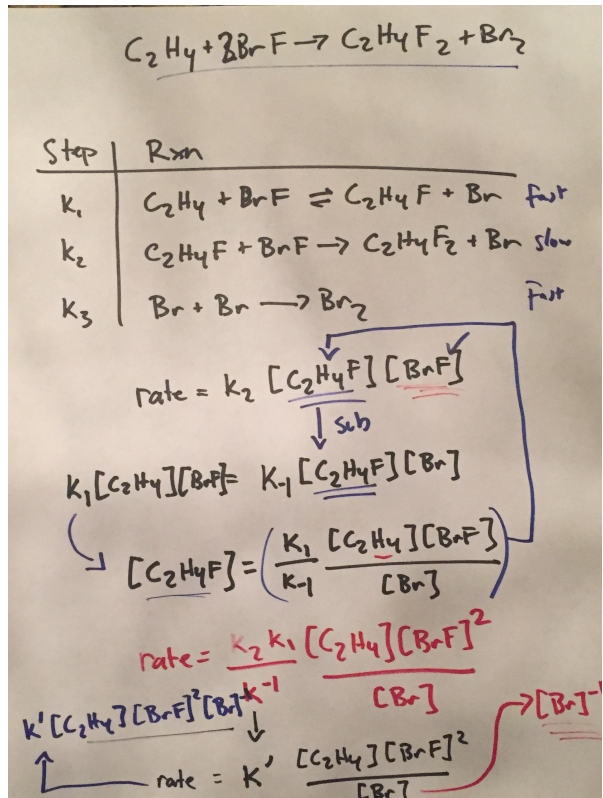 C₂H₄ + 2BrF → C₂H₄F₂ + Br₂
Step | Rxn
K₁ C₂H₄ + BrF ⇌ C₂H₄F + Br fast
K₂ C₂H₄F + BrF → C₂H₄F₂ + Br slow
K₃ Br + Br → Br₂ Fast
rate = K₂ [C₂H₄F] [BrF]
↓ sub
K₁[C₂H₄][BrF] = K₋₁[C₂H₄F][Br]
[C₂H₄F] = (K₁/K₋₁ [C₂H₄][BrF]/[Br])
rate = K₂K₁/K⁻¹ [C₂H₄][BrF]²/[Br]
K'[C₂H₄][BrF]²[Br]⁻¹ → [Br]⁻¹
rate = K' [C₂H₄][BrF]²/[Br]